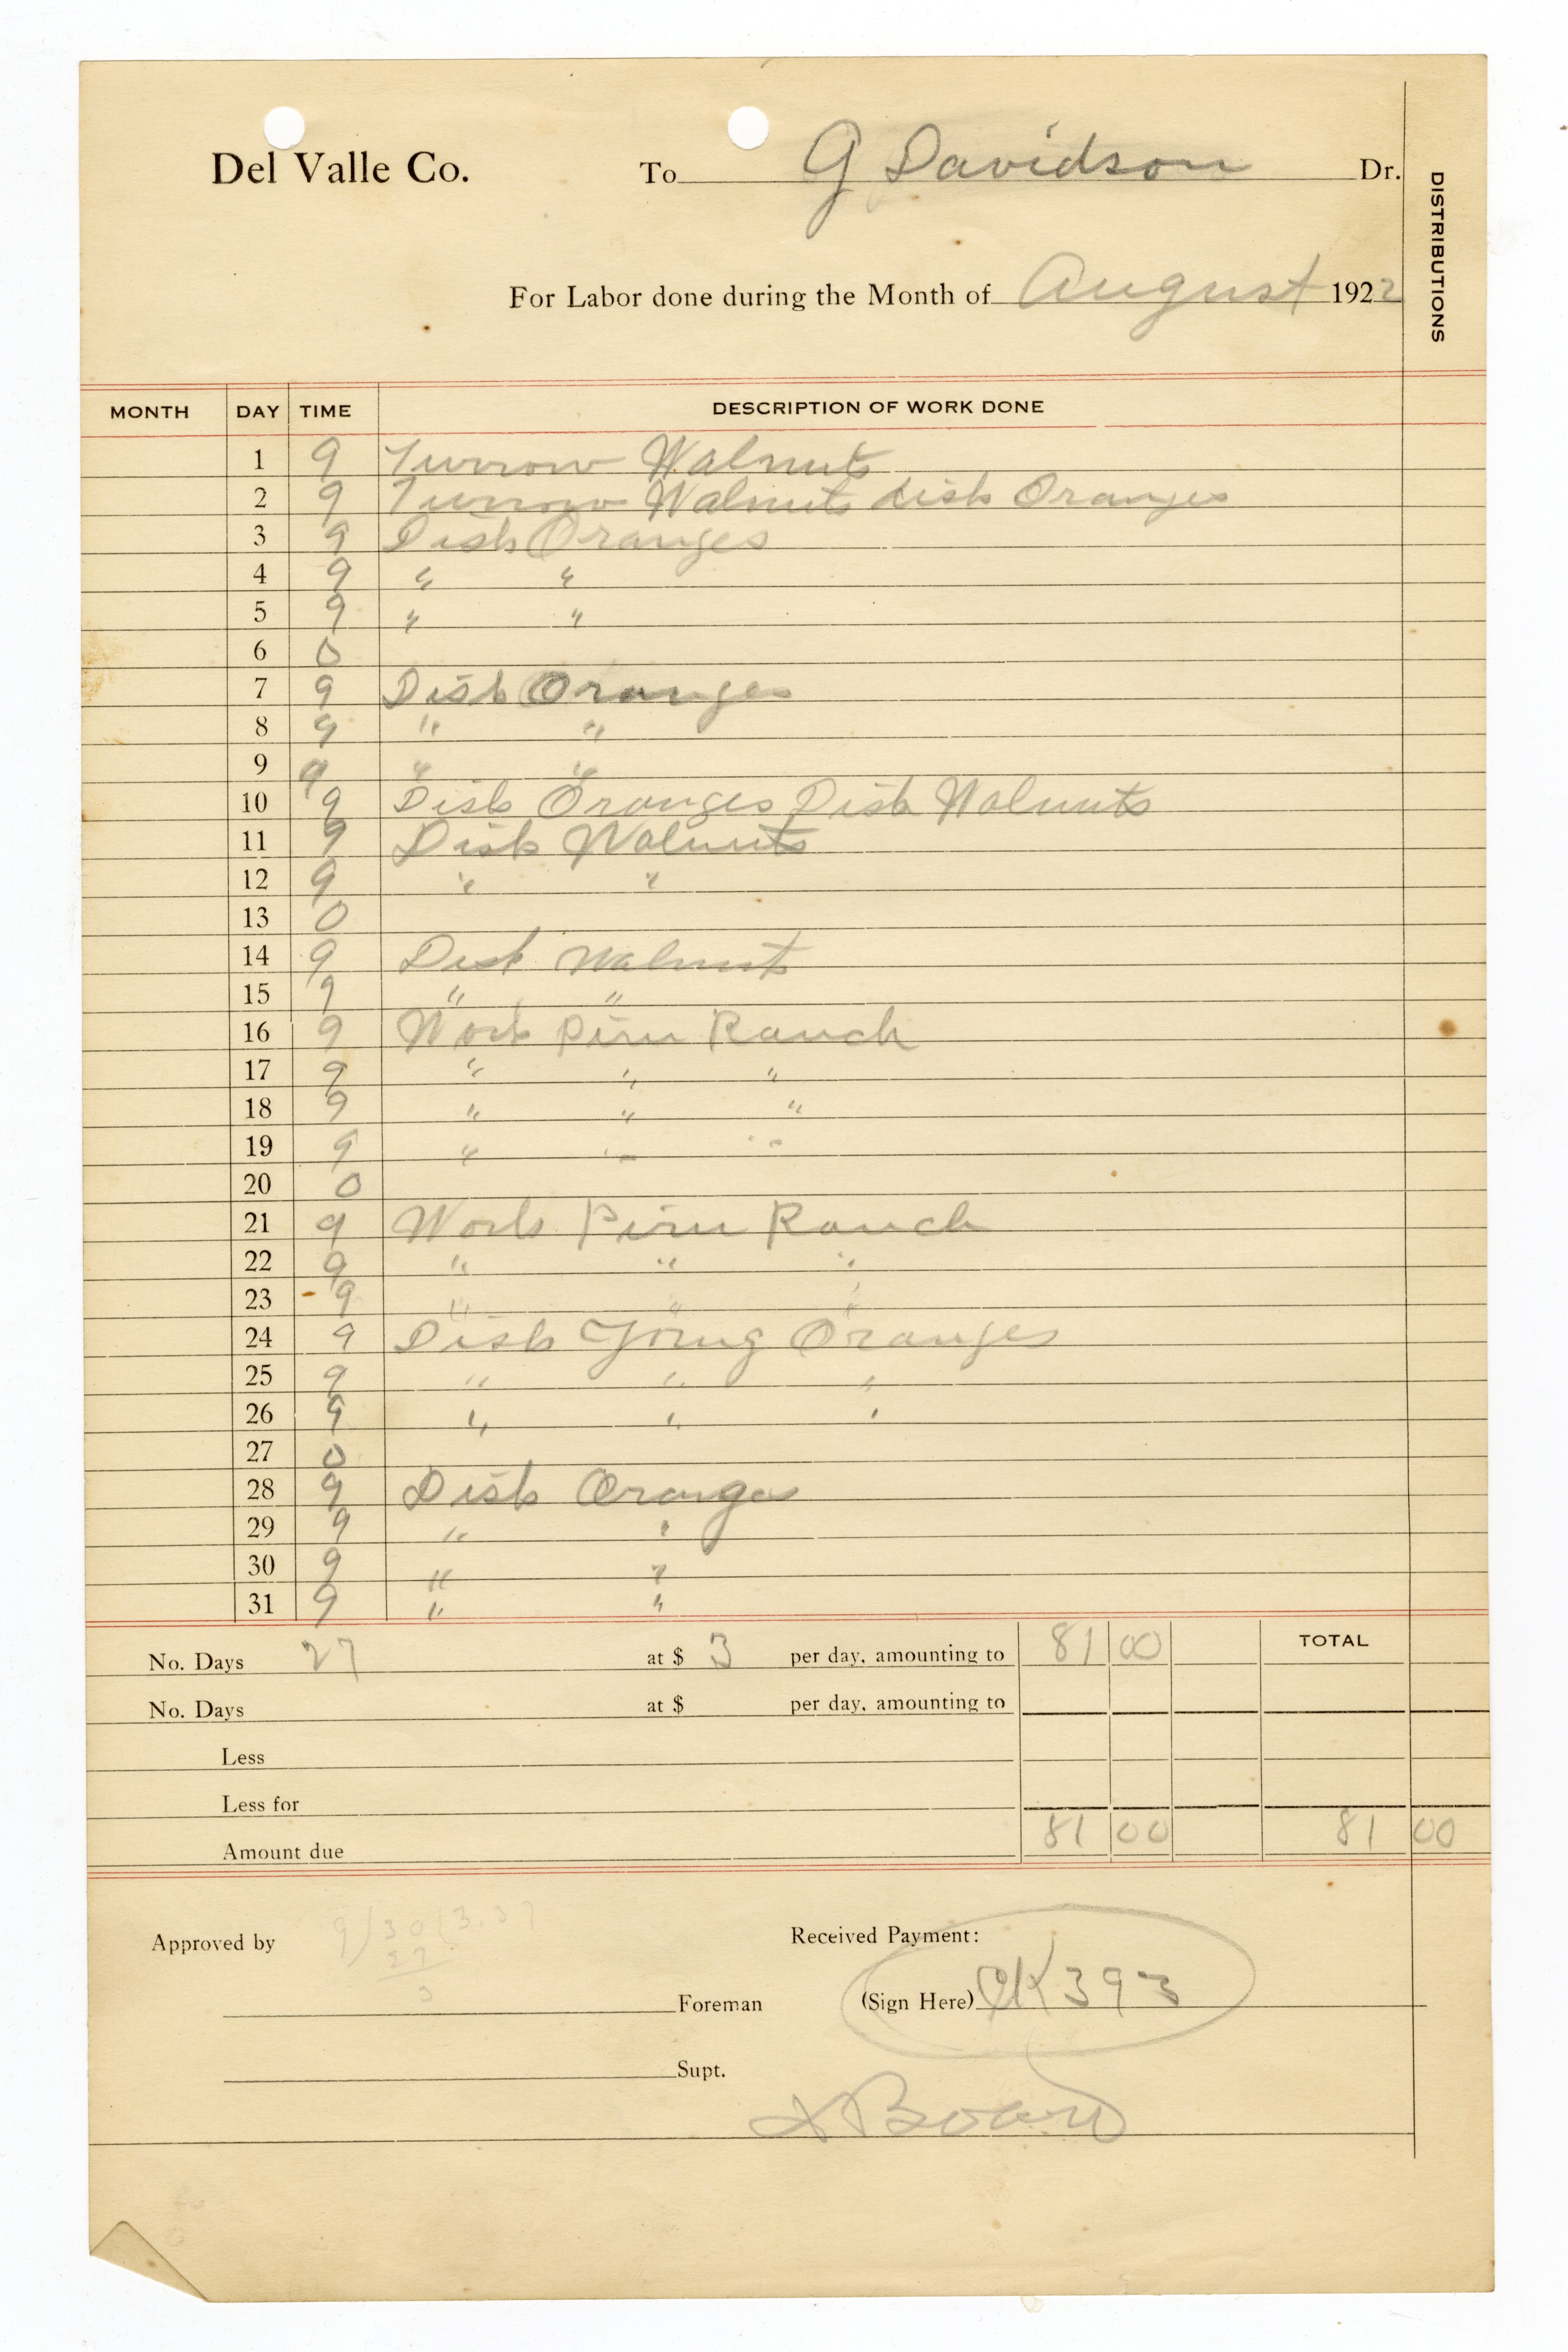 Del Valle Co. To G Davidson Dr.
DISTRIBUTIONS
For Labor done during the Month of August 1922
MONTH DAY TIME DESCRIPTION OF WORK DONE
1 9 Furrow Walnuts
2 9 Furrow Walnuts disk Oranges
3 9 Disk Oranges
4 9 " "
5 9 " "
6 0
7 9 Disk Oranges
8 9 " "
9 9 " "
10 9 Disk Oranges Disk Walnuts
11 9 Disk Walnuts
12 9 " "
13 0
14 9 Disk Walnuts
15 9 " "
16 9 Work Piru Ranch
17 9 " " "
18 9 " " "
19 9 " " "
20 0
21 9 Work Piru Ranch
22 9 " " "
23 9 " " "
24 9 Disk Young Oranges
25 9 " " "
26 9 " " "
27 0
28 9 Disk Oranges
29 9 " "
30 9 " "
31 9 " "
No. Days 27 at $ 3 per day, amounting to 81 00 TOTAL
No. Days at $ per day, amounting to
Less
Less for
Amount due 81 00 81 00
9/30/3.37
27
3
Approved by Received Payment:
Foreman (Sign Here) CK 393
Supt.
Board